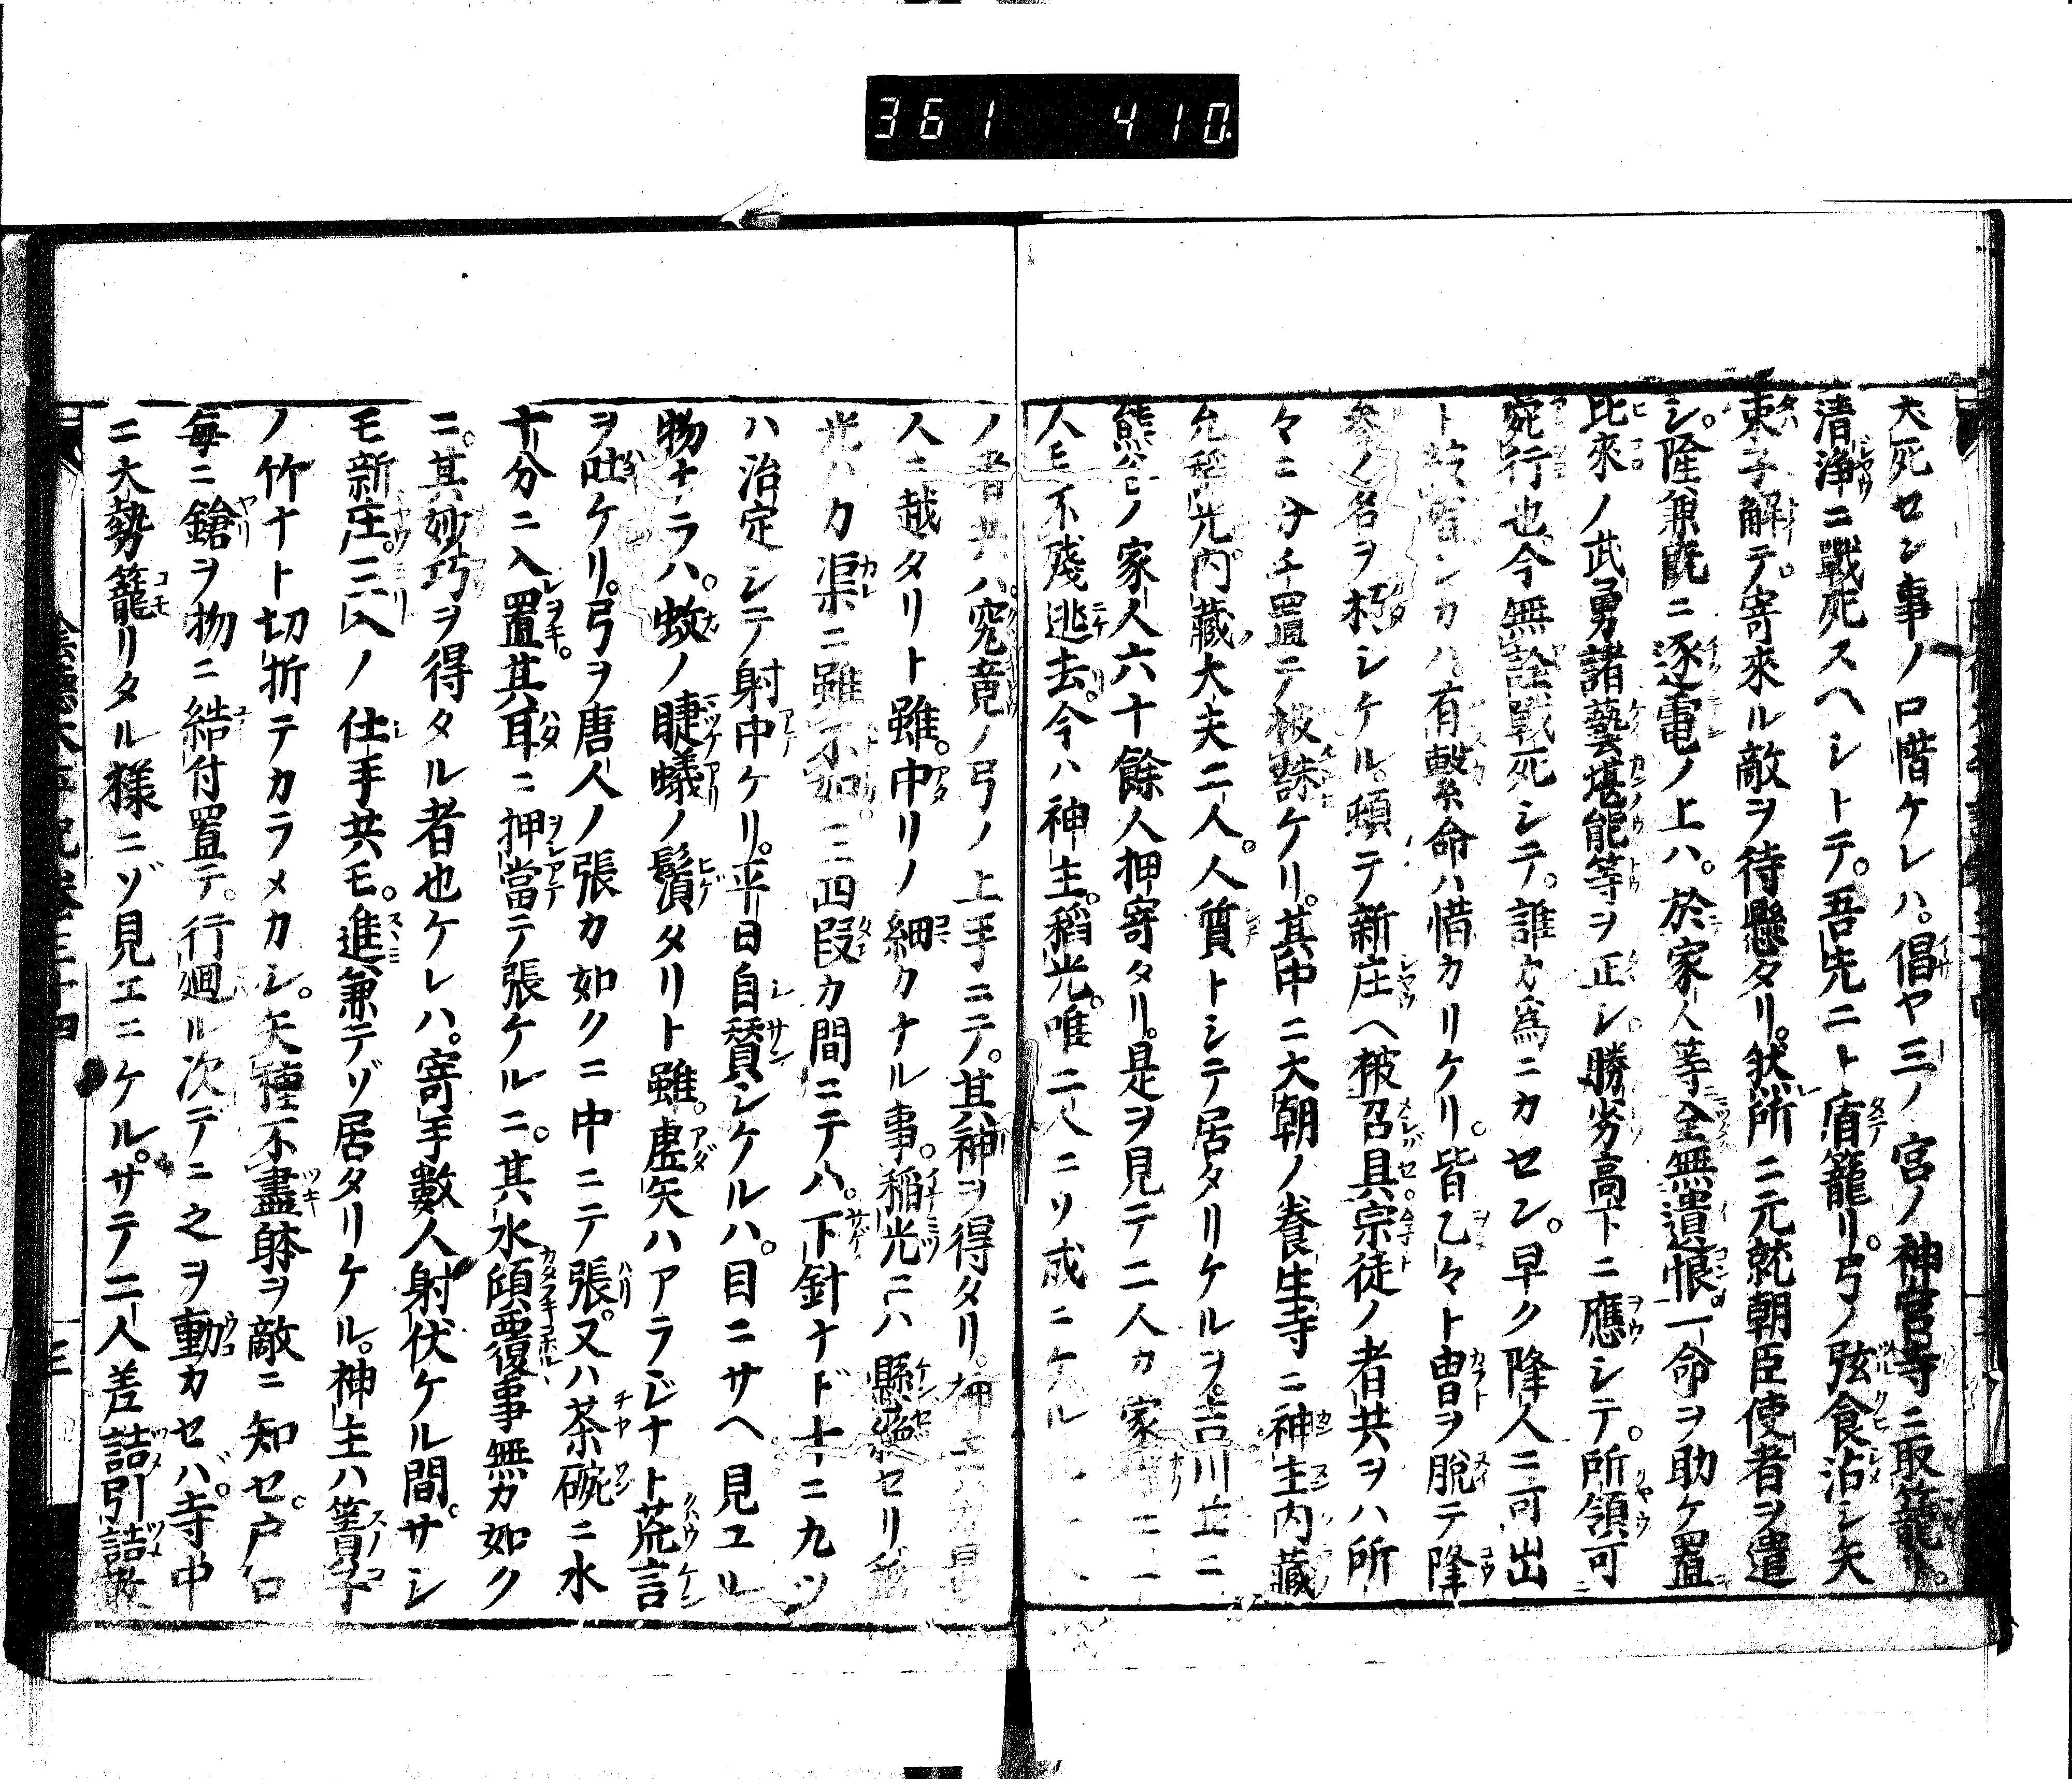 361 410
犬死セン事ノ口惜ケレハ。倡ヤ三ノ宮ノ神宮寺ニ取籠ト。
清浄ニ戰死スヘシトテ。吾先ニト盾籠リ。弓ノ弦食沾シ矢
束子解テ。寄來ル敵ヲ待懸タリ。然所ニ元就朝臣使者ヲ遣
シ。隆兼既ニ逐電ノ上ハ。於家人等全無遺恨。一命ヲ助ケ置
比來ノ武勇諸藝堪能等ヲ正シ。勝劣高下ニ應シテ。所領可
宛行也。今無詮戰死シテ。誰カ為ニカセン。早ク降人ニ可出
ト シカハ。有繋命ハ惜カリケリ。皆乙々ト冑ヲ脫テ降
參ノ名ヲ朽シケル。頓テ新庄へ被召具。宗徒ノ者共ヲハ所
々ニ分チ置テ被誅ケリ。其中ニ大朝ノ養生寺ニ神主内藏
允稲光内藏大夫二人。人質トシテ居タリケルヲ。吉川 ニ
熊谷ノ家人六十餘人押寄タリ。是ヲ見テ二人カ家 二
人モ不殘逃去。今ハ神主。稻光。唯二人ニソ成ニケル
ノ者共ハ。究竟ノ弓ノ上手ニテ。其神ヲ得タリ。神主ハ
人ニ越タリト雖。中リノ細カナル事。稲光ニハ懸絕セリ
光ハカ渠ニ雖不如。三四段カ間ニテハ。下針ナド十ニ九ツ
ハ治定シテ射中ケリ。平日自賛シケルハ。目ニサヘ見ユル
物ナラハ。蚊ノ睫蟻ノ鬚タリト雖。虚矢ハアラジナト荒言
ヲ吐ケリ。弓ヲ唐人ノ張カ如クニ中ニテ張。又ハ茶碗ニ水
十分ニ入置。其耳ニ押當テ張ケルニ。其水傾覆事無カ如ク
ニ。其妙巧ヲ得タル者也ケレハ。寄手數人射伏ケル間。サシ
モ新庄。三入ノ仕手共モ。進兼テゾ居タリケル。神主ハ簀子
ノ竹ナト切折テカラメカシ。矢種不盡躰ヲ敵ニ知セ。戸口
毎ニ鎗ヲ物ニ結付置テ。行廻ル次デニ之ヲ動カセバ。寺中
ニ大勢籠リタル様ニゾ見エニケル。サテ二人差詰引詰散